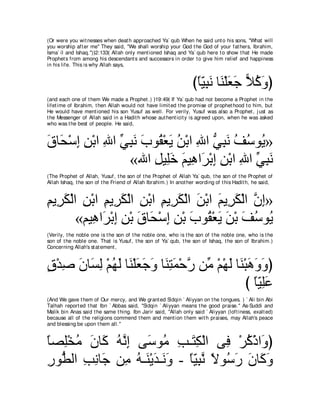 (Or were you witnesses when death approached Ya`qub When he said unto his sons, "What will
you worship after me" They said, "We shall worship your God the God of your fathers, Ibrahim,
Isma`il and Ishaq,'')(2:133( Allah only mentioned Ishaq and Ya`qub here to show that He made
Prophets from among his descendants and successors in order to give him relief and happiness
in his life. This is why Allah says,
(وَكُلاًّ جَعَلْنَا نَبِيّاً)
(and each one of them We made a Prophet.) )19:49( If Ya`qub had not become a Prophet in the
lifetime of Ibrahim, then Allah would not have limited the promise of prophethood to him, but
He would have mentioned his son Yusuf as well. For verily, Yusuf was also a Prophet, just as
the Messenger of Allah said in a Hadith whose authenticity is agreed upon, when he was asked
who was the best of people. He said,
«يُوسُفُ نَبِيُّ اللهِ ابْنُ يَعْقُوبَ نَبِيِّ اللهِ ابْنِ إِسْحَاقَ
نَبِيِّ اللهِ ابْنِ إِبْرَاهِيمَ خَلِيلِ اللهِ»
(The Prophet of Allah, Yusuf, the son of the Prophet of Allah Ya`qub, the son of the Prophet of
Allah Ishaq, the son of the Friend of Allah Ibrahim.) In another wording of this Hadith, he said,
«إِنَّ الْكَرِيمَ ابْنَ الْكَرِيمِ ابْنِ الْكَرِيمِ ابْنِ الْكَرِيمِ
يُوسُفُ بْنُ يَعْقُوبَ بْنِ إِسْحَاقَ بْنِ إِبْرَاهِيمَ»
(Verily, the noble one is the son of the noble one, who is the son of the noble one, who is the
son of the noble one. That is Yusuf, the son of Ya`qub, the son of Ishaq, the son of Ibrahim.)
Concerning Allah's statement,
(وَوَهَبْنَا لَهْمْ مِّن رَّحْمَتِنَا وَجَعَلْنَا لَهُمْ لِسَانَ صِدْقٍ
عَلِيّاً )
(And We gave them of Our mercy, and We granted Sidqin `Aliyyan on the tongues. ) `Ali bin Abi
Talhah reported that Ibn `Abbas said, "Sidqin `Aliyyan means the good praise." As-Suddi and
Malik bin Anas said the same thing. Ibn Jarir said, "Allah only said `Aliyyan (loftiness, exalted)
because all of the religions commend them and mention them with praises, may Allah's peace
and blessing be upon them all."
(وَاذْكُرْ فِى الْكِتَـبِ مُوسَى إِنَّهُ كَانَ مُخْلِصاً
وَكَانَ رَسُولاً نَّبِيّاً - وَنَـدَيْنَـهُ مِن جَانِبِ الطُّورِ